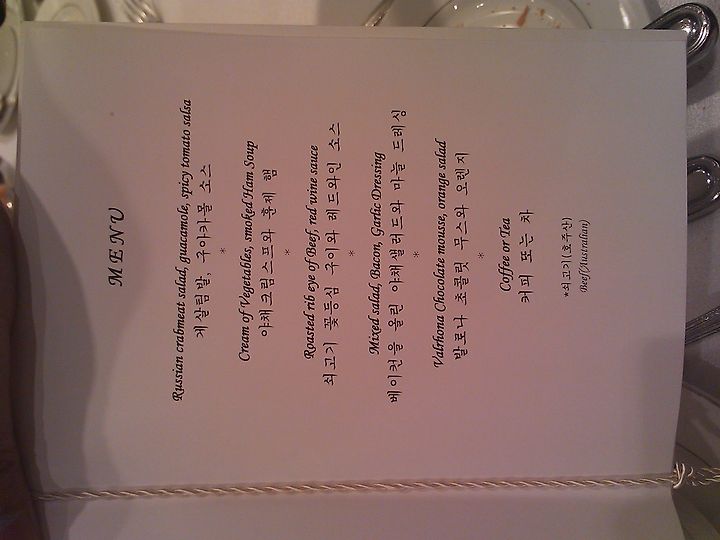 MENU
Russian crabmeat salad, guacamole, spicy tomato salsa
게살팀발, 구아카몰 소스
*
Cream of Vegetables, smoked Ham Soup
야채크림스프와 훈제 햄
*
Roasted rib eye of Beef, red wine sauce
쇠고기 꽃등심 구이와 레드와인 소스
*
Mixed salad, Bacon, Garlic Dressing
베이컨을 올린 야채샐러드와 마늘 드레싱
*
Valrhona Chocolate mousse, orange salad
발로나 초콜릿 무스와 오렌지
*
Coffee or Tea
커피 또는 차
*쇠고기(호주산)
Beef(Australian)